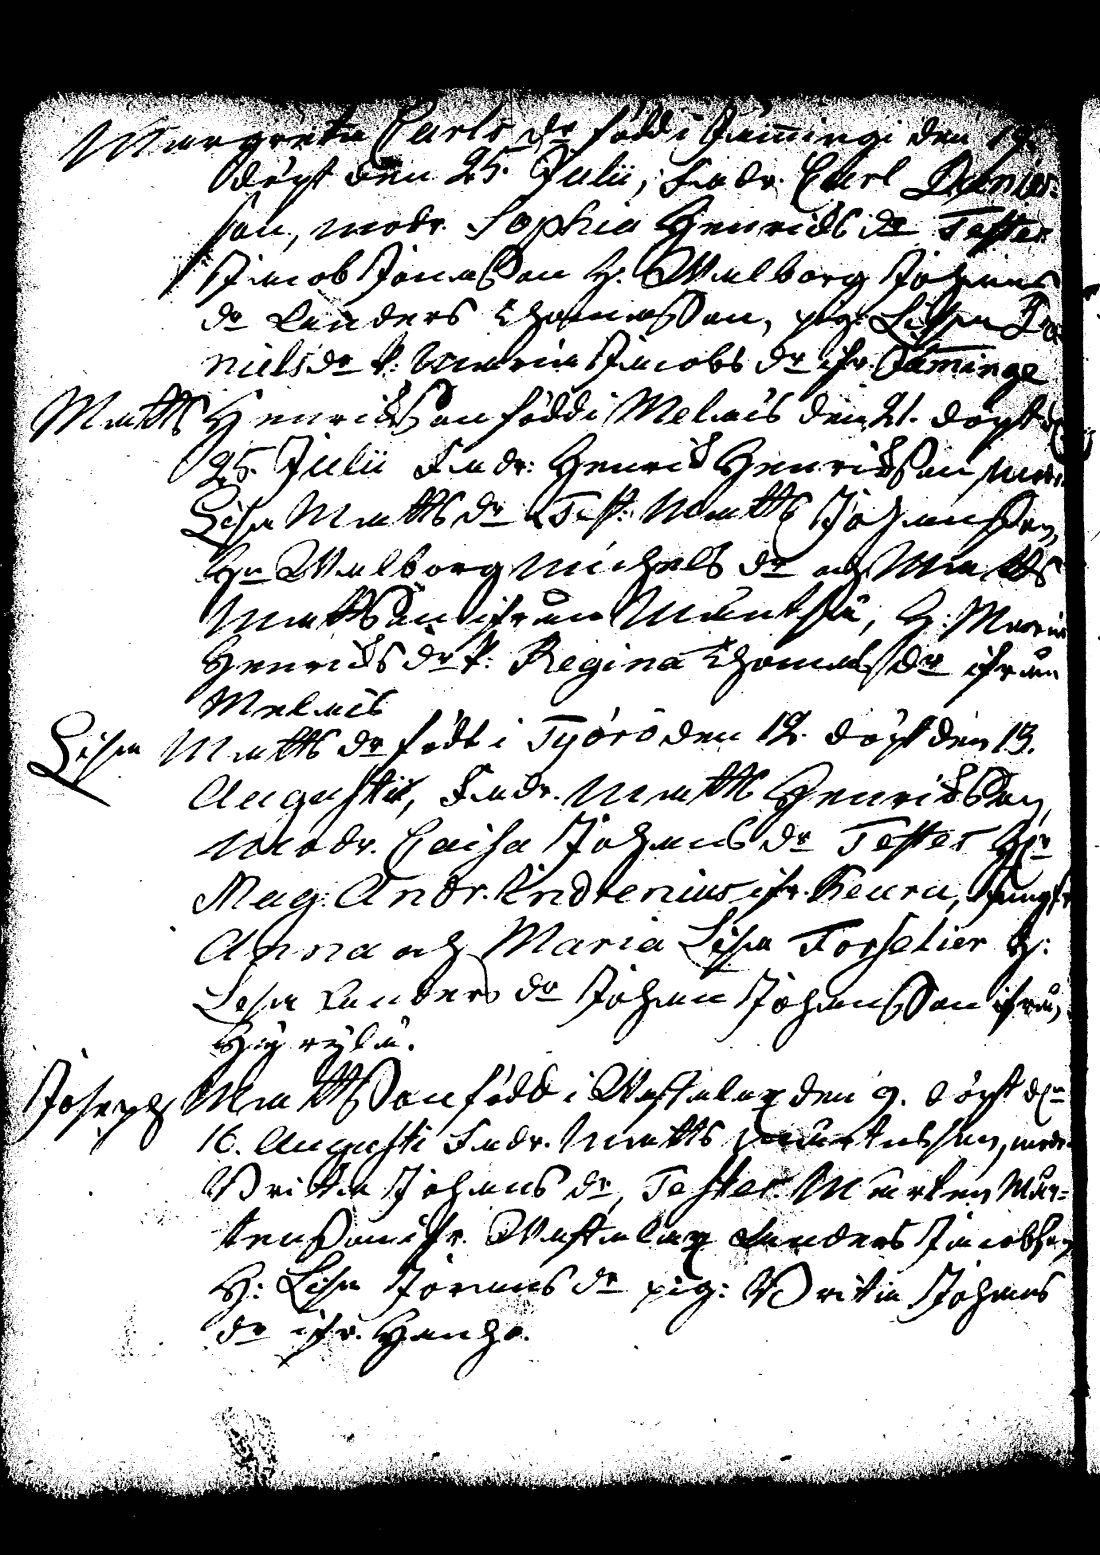 Margreta Carls dr född i Jämingi den 19.
döpt den 25. Julii, Fadr. Carl Daniels-
son, modr. Sophia Henrichs dr Testes
Jacob Jonasson H. Walborg Johans
dr Anders Thomasson, pig. Lisa Da
niels dr P. Maria Jacobs dr ifr. Jäminge
Matts Henrichsson född i Melais den 21. döpt d.
25. Julii Fadr: Henrich Henrichsson modr
Lisa Matts dr Test: Matts Johansson,
Hu Walborg Michels dr och Matts
Mattsson ifrån Mäntsä, H: Maria
Henrichs dr P: Regina Thomas dr ifrån
Melais
Lisa Matts dr född i Työrö den 12. döpt den 13.
Augustii, Fadr. Matts Henrichsson,
modr. Caisa Johans dr Testes Hr
Mag: Andr. Indrenius ifr. Keuru, Jungfr
Anna och Maria Lisa Forselier H:
Lisa Anders dr Johan Johansson ifrån
Hyrylä.
Joseph Mattsson född i Wastalax den 9. döpt den
16. Augusti Fadr. Matts Mårtensson, modr.
Britta Johans dr, Testes Mårten Mår-
tensson ifr. Wastalax Anders Jacobsson
H: Lisa Jörans dr pig: Britta Johans
dr ifr. Hanho.